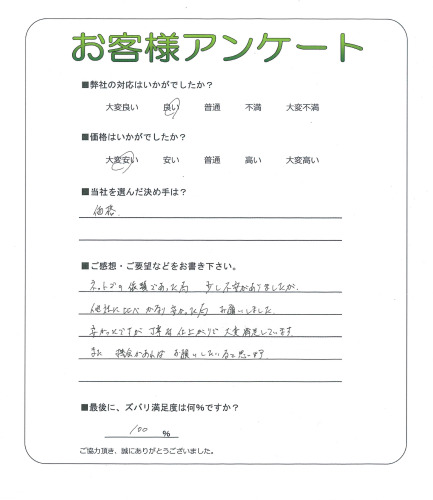 お客様アンケート
■弊社の対応はいかがでしたか？
大変良い 良い 普通 不満 大変不満
■価格はいかがでしたか？
大変安い 安い 普通 高い 大変高い
■当社を選んだ決め手は？
価格.
■ご感想・ご要望などをお書き下さい。
ネットでの依頼であった為 少し不安がありましたが、
他社に比べ かなり安かった為 お願いしました.
安かったですが 丁寧な仕上がりで 大変満足しています.
また 機会があれば お願いしたいと思います.
■最後に、ズバリ満足度は何％ですか？
100 ％
ご協力頂き、誠にありがとうございました。